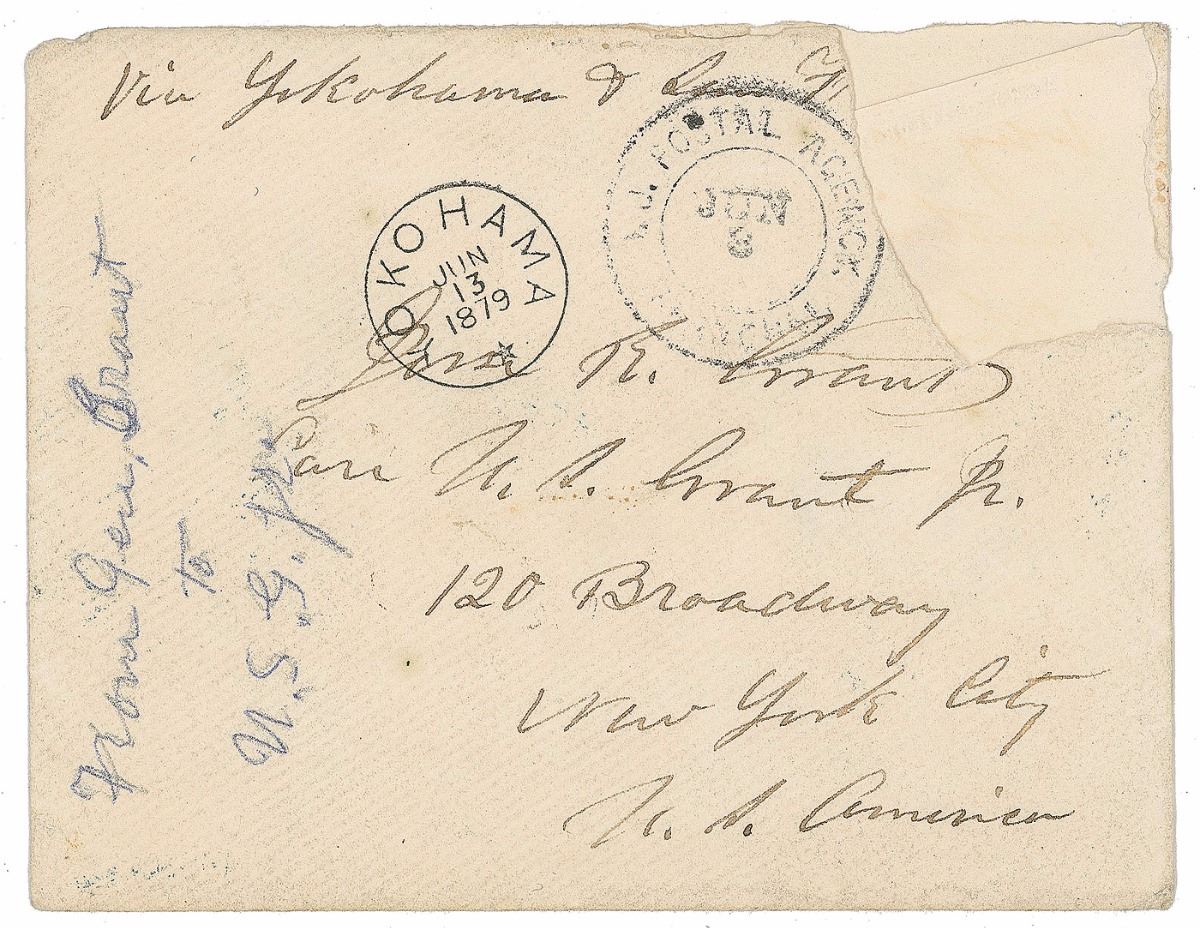 Via Yokohama & San F
U.S. POSTAL AGENCY
JUN
8
SHANGHAI
YOKOHAMA
JUN
13
1879
Jesse R. Grant
Care U. S. Grant Jr.
120 Broadway
New York City
U. S. America
From Gen. Grant
to
U.S.G. Jr.